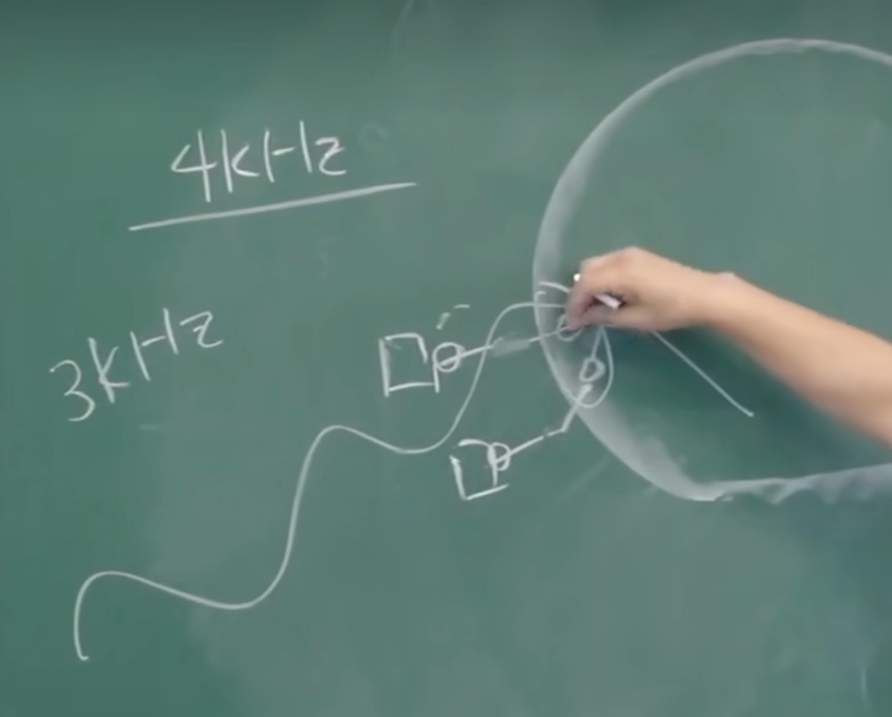 4kHz
3kHz